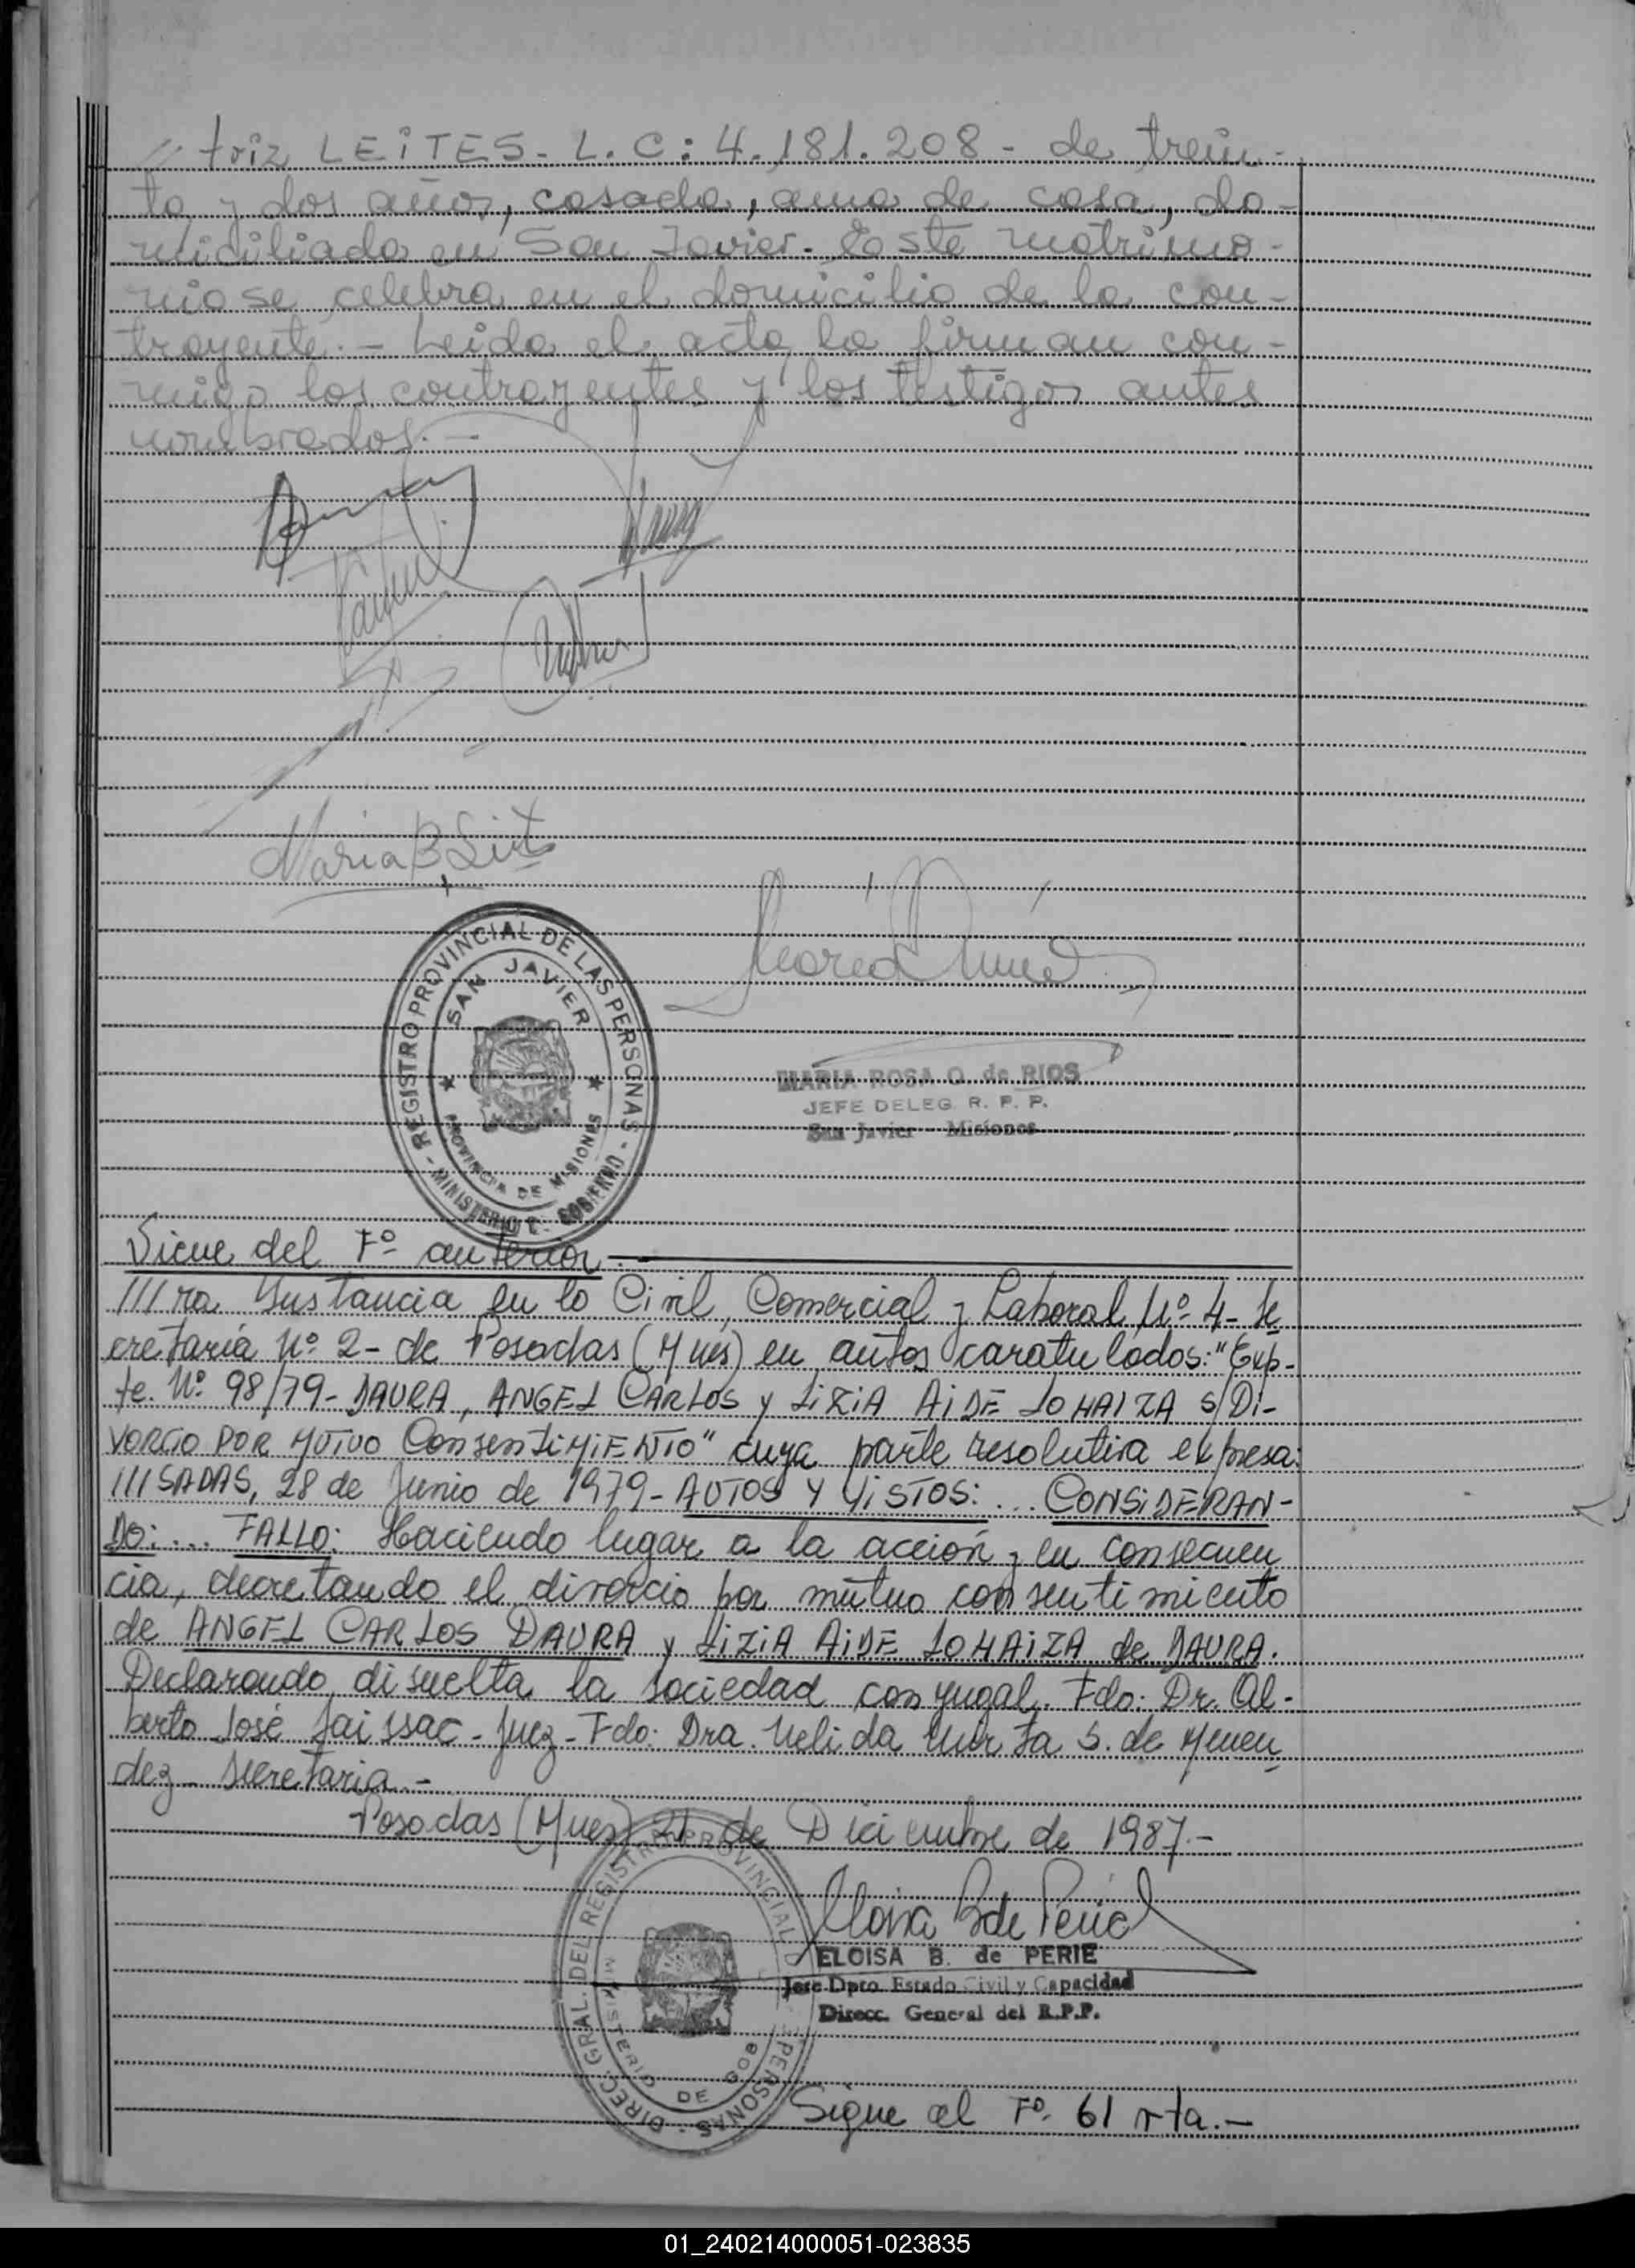 // triz LEiTES - L. C: 4.181.208 - de trein-
ta y dos años, casada, ama de casa, do-
miciliada en San Javier - Este matrimo-
nio se celebra en el domicilio de la con-
trayente. - Leida el acta la firman con-
migo los contrayentes y los testigos antes
nombrados. -
Maria B Leites
REGISTRO PROVINCIAL DE LAS PERSONAS - MINISTERIO DE GOBIERNO -
SAN JAVIER
PROVINCIA DE MISIONES
MARIA ROSA O. de RIOS
JEFE DELEG. R. P. P.
San Javier - Misiones
Sigue del Fº anterior. -
///ra Instancia en lo Civil, Comercial y Laboral Nº 4 - Se
cretaría Nº 2 - de Posadas (Mnes) en autos caratulados: "Exp-
te. Nº 98/79 - DAURA, ANGEL CARLOS y LiZiA AiDE LOHAIZA S/Di-
VORCIO POR MUTUO CONSENTiMiENTO" cuya parte resolutiva expresa:
///SADAS, 28 de Junio de 1979 - AUTOS Y ViSTOS: ... CONSiDERAN-
DO: ... FALLO: Haciendo lugar a la acción y en consecuen
cia, decretando el divorcio por mutuo consentimiento
de ANGEL CARLOS DAURA y LiZiA AiDE LOHAiZA de DAURA.
Declarando disuelta la sociedad conyugal. Fdo: Dr. Al-
berto José Jaissac - Juez - Fdo: Dra. Nelida S. de Menen
dez - Secretaria. -
Posadas (Mnes) 21 de Diciembre de 1987. -
Eloisa B de Perié
ELOISA B. de PERIE
Jefe Dpto. Estado Civil y Capacidad
Direcc. General del R.P.P.
DIREC. GRAL. DEL REGISTRO PROVINCIAL DE PERSONAS -
MINISTERIO DE GOB
Sigue al Fº. 61 vta. -
01_240214000051-023835